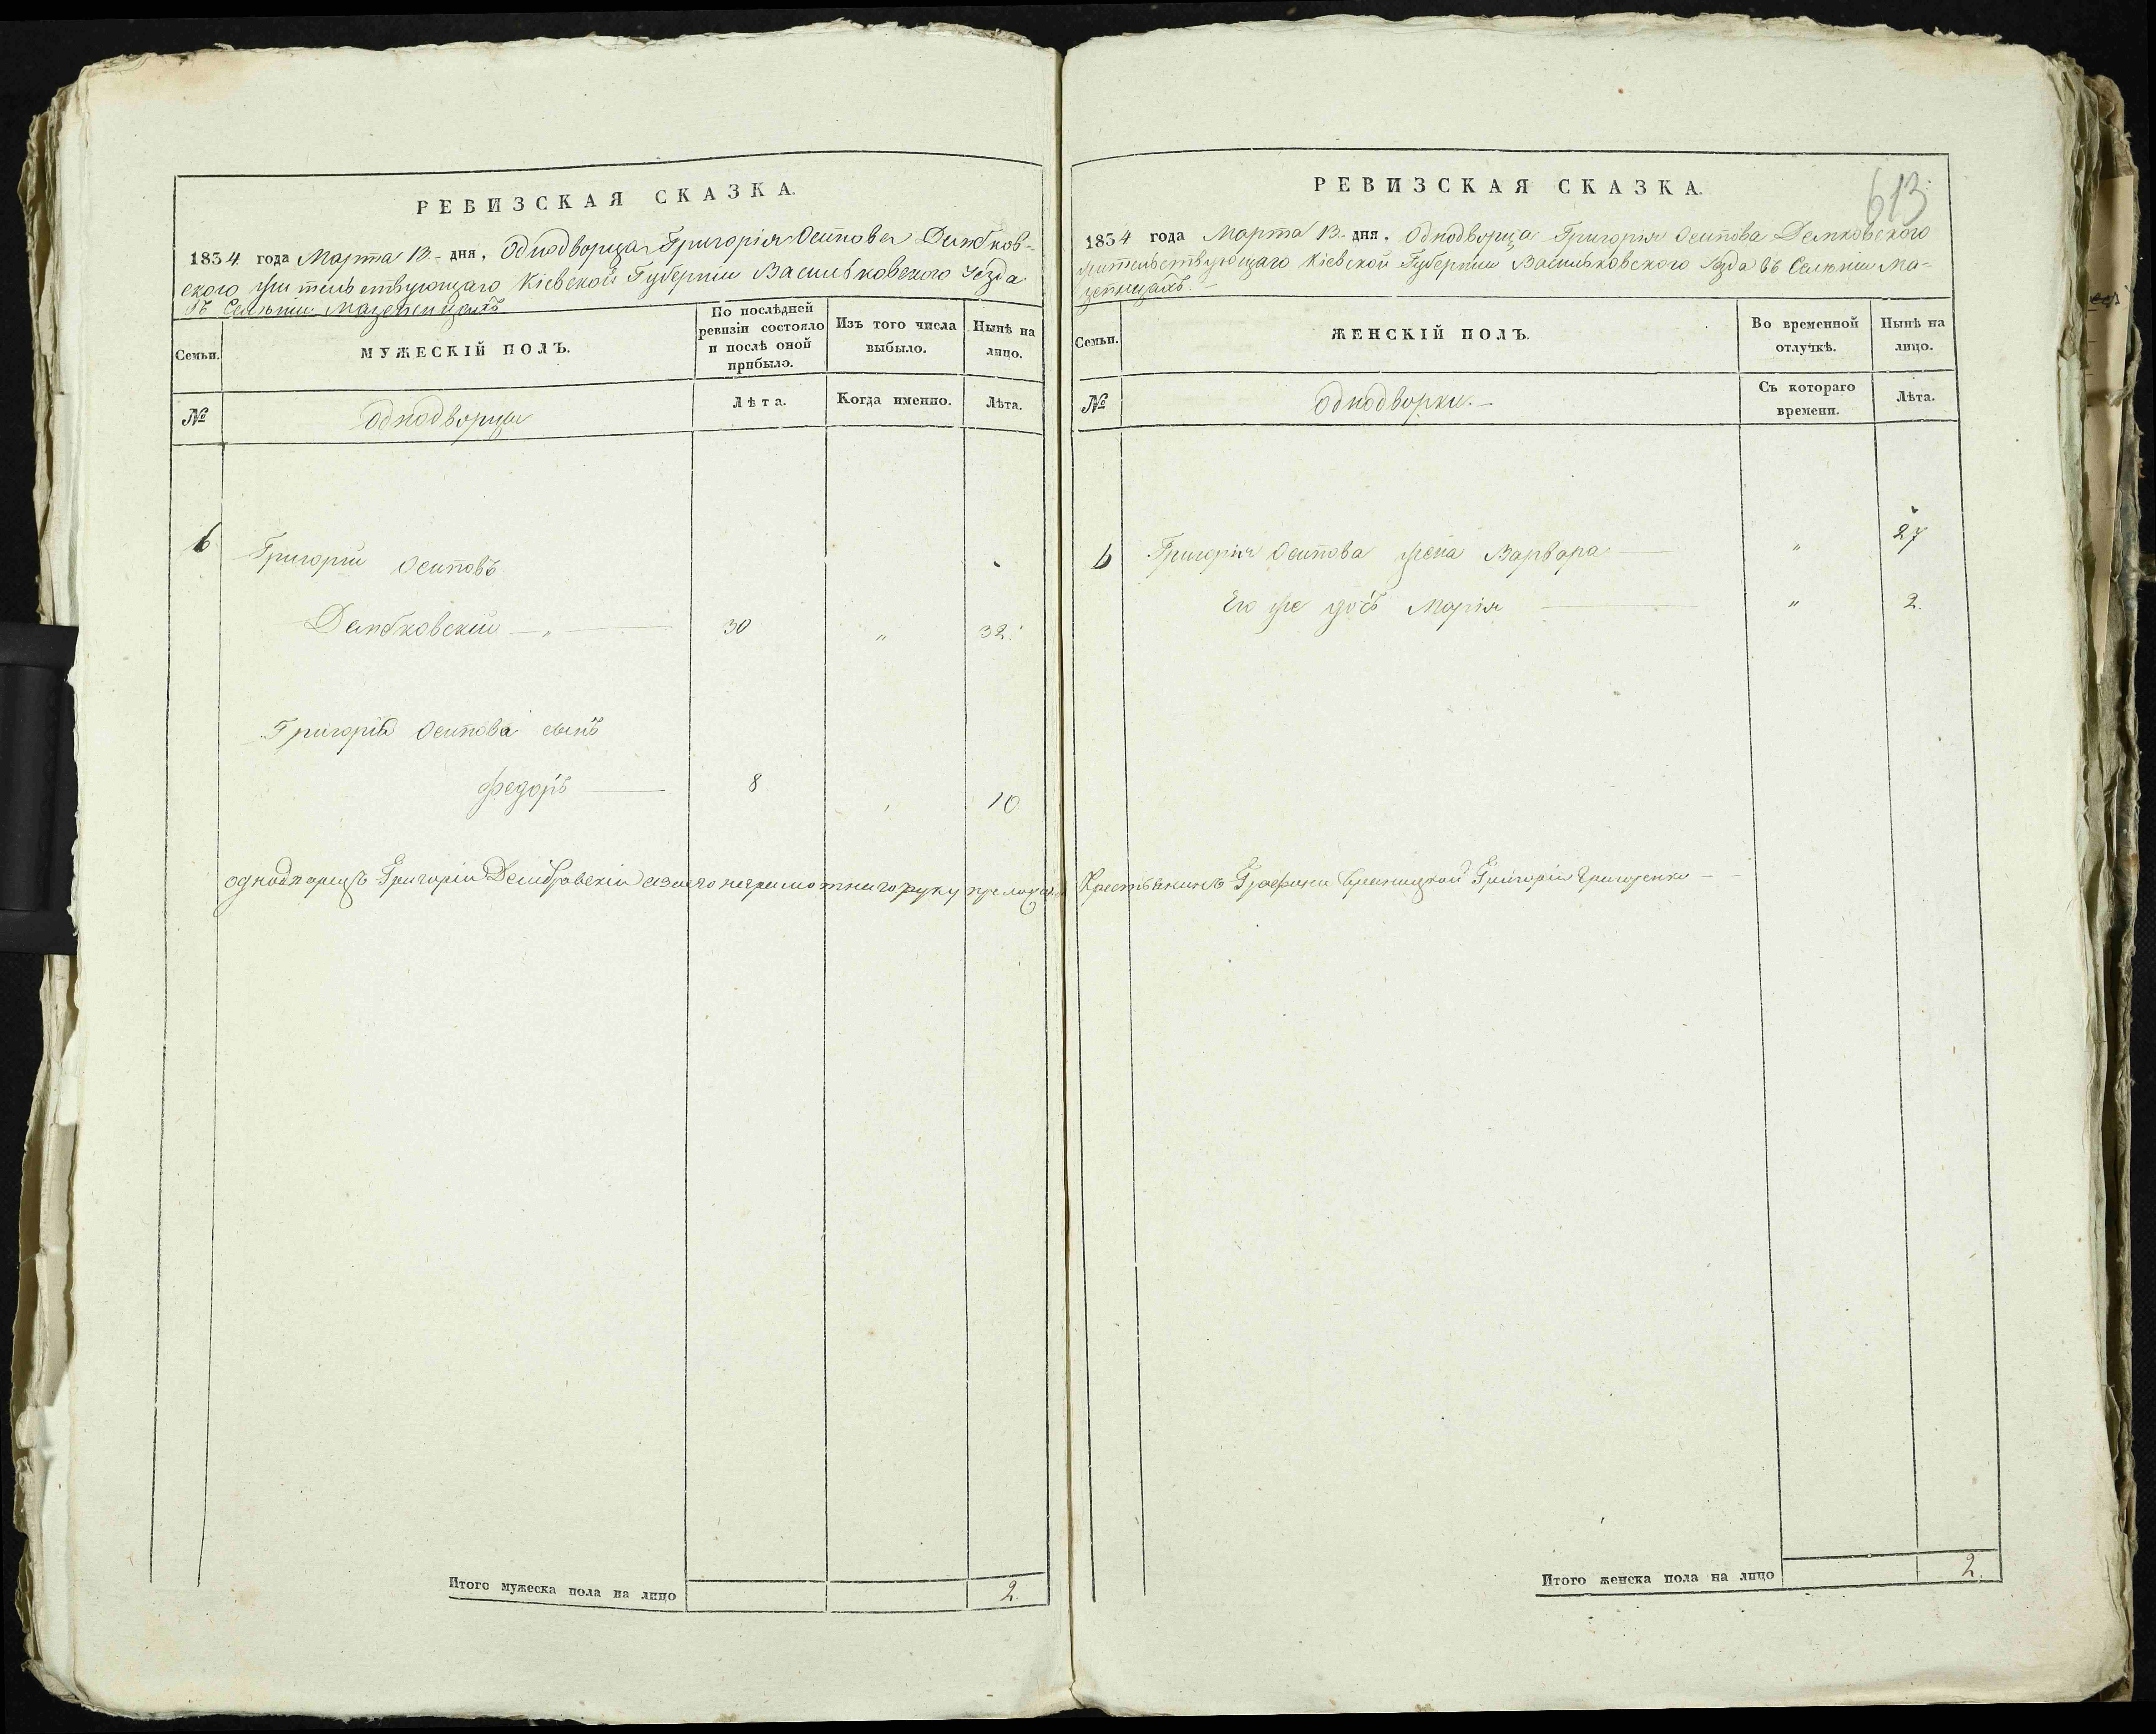 РЕВИЗСКАЯ СКАЗКА.
1834 года Марта 13. дня. Однодворца Григорія Осипова Демков-
ского жительствующаго Кіевской Губерніи Васильковского Уезда
въ Селеніи Мазепенцахъ
Семьи.
МУЖЕСКІЙ ПОЛЪ.
По послѣдней ревизіи состояло и послѣ оной прибыло.
Изъ того числа выбыло.
Нынѣ на лицо.
№
Однодворцы
Лѣта.
Когда именно.
Лѣта.
6
Григорій Осиповъ
Демковскій 30 " 32.
Григорія Осипова сынъ
Федоръ 8 10
однодворецъ Григорій неграмотнаго руку
Итого мужеска пола на лицо 2.
613
РЕВИЗСКАЯ СКАЗКА.
1834 года Марта 13. дня. Однодворца Григорія Осипова Демковского
жительствующаго Кіевской Губерніи Васильковского Уезда въ Селеніи Ма-
зепенцахъ.
Семьи.
ЖЕНСКІЙ ПОЛЪ.
Во временной отлучкѣ.
Нынѣ на лицо.
№
Однодворки.
Съ котораго времени.
Лѣта.
6 Григорія Осипова жена Варвара " 27
Его же дочь Марія " 2.
Крестьянинъ Графини Григорій Григоренко
Итого женска пола на лицо 2.